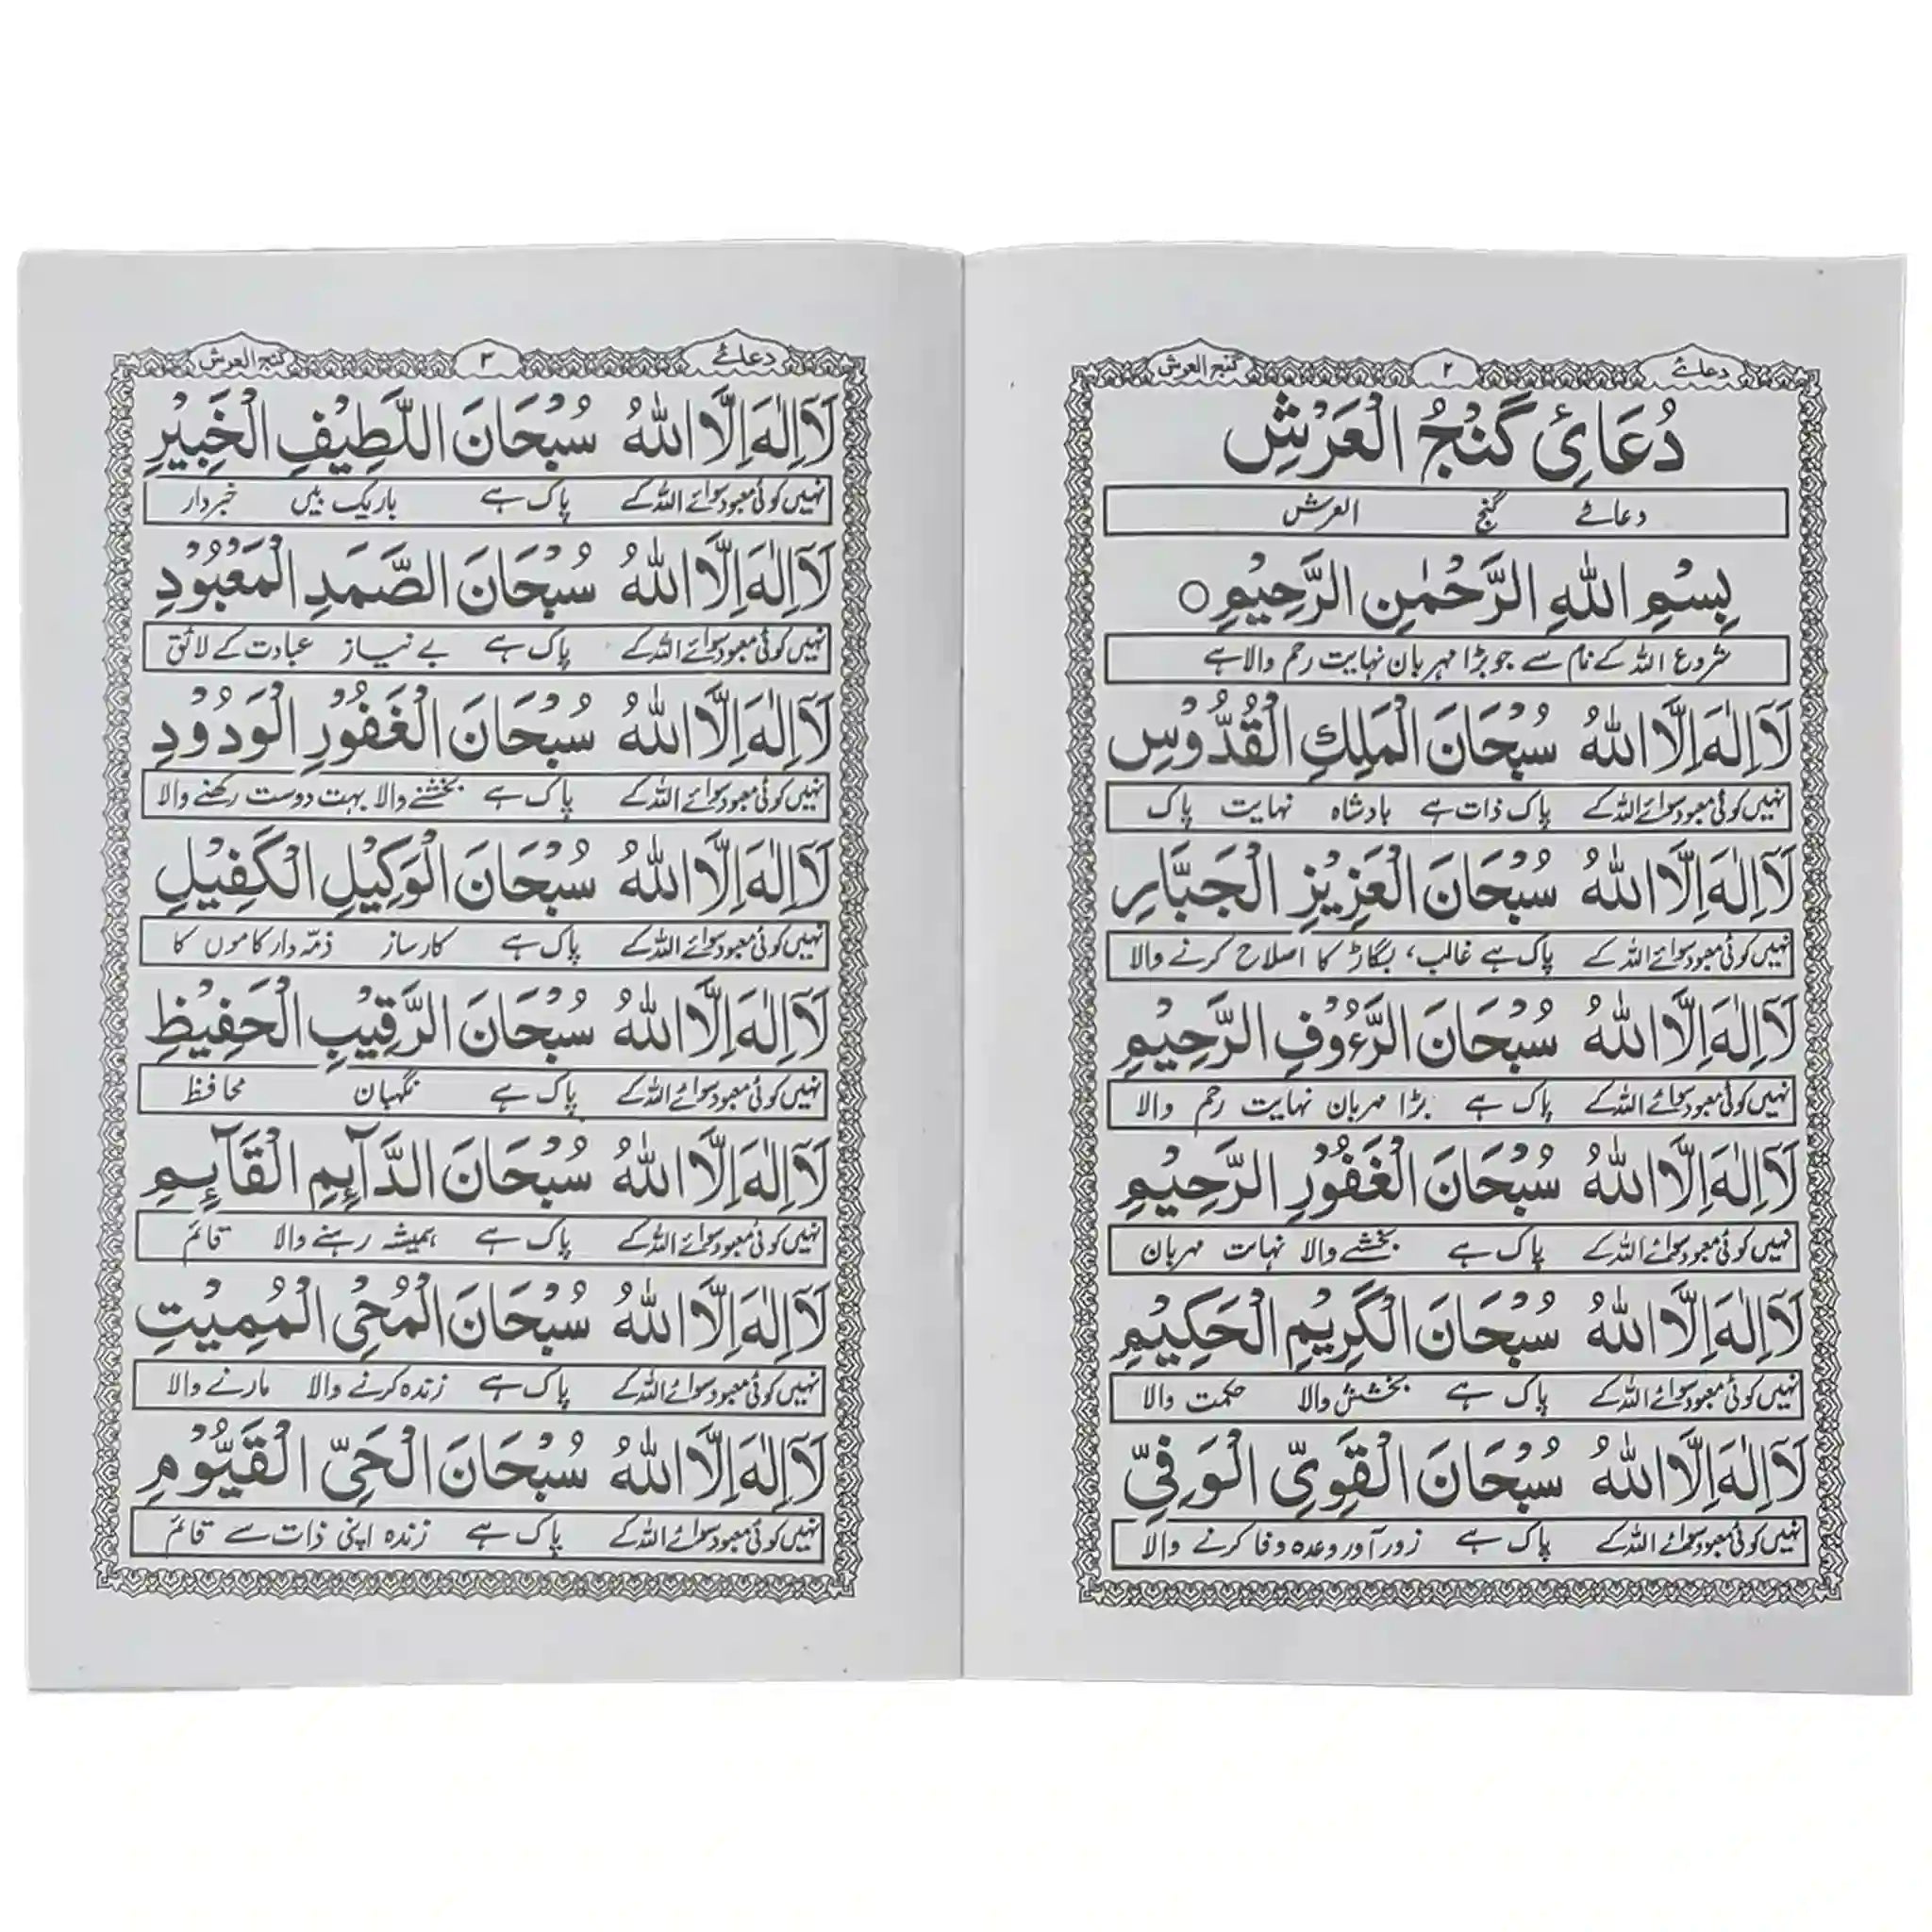 دعائے ۲ گنج العرش
دُعَائِ گَنْجُ الْعَرْشِ
دعائے گنج العرش
بِسْمِ اللهِ الرَّحْمٰنِ الرَّحِيْمِ ○
شروع اللہ کے نام سے جو بڑا مہربان نہایت رحم والا ہے
لَآ اِلٰهَ اِلَّا اللهُ سُبْحَانَ الْمَلِكِ الْقُدُّوْسِ
نہیں کوئی معبود سوائے اللہ کے پاک ذات ہے بادشاہ نہایت پاک
لَآ اِلٰهَ اِلَّا اللهُ سُبْحَانَ الْعَزِيْزِ الْجَبَّارِ
نہیں کوئی معبود سوائے اللہ کے پاک ہے غالب، بگاڑ کا اصلاح کرنے والا
لَآ اِلٰهَ اِلَّا اللهُ سُبْحَانَ الرَّءُوْفِ الرَّحِيْمِ
نہیں کوئی معبود سوائے اللہ کے پاک ہے بڑا مہربان نہایت رحم والا
لَآ اِلٰهَ اِلَّا اللهُ سُبْحَانَ الْغَفُوْرِ الرَّحِيْمِ
نہیں کوئی معبود سوائے اللہ کے پاک ہے بخشے والا نہات مہربان
لَآ اِلٰهَ اِلَّا اللهُ سُبْحَانَ الْكَرِيْمِ الْحَكِيْمِ
نہیں کوئی معبود سوائے اللہ کے پاک ہے بخشش والا حکمت والا
لَآ اِلٰهَ اِلَّا اللهُ سُبْحَانَ الْقَوِيِّ الْوَفِيِّ
نہیں کوئی معبود سوائے اللہ کے پاک ہے زور آور وعدہ وفا کرنے والا
دعائے ۳ گنج العرش
لَآ اِلٰهَ اِلَّا اللهُ سُبْحَانَ اللَّطِيْفِ الْخَبِيْرِ
نہیں کوئی معبود سوائے اللہ کے پاک ہے باریک بیں خبردار
لَآ اِلٰهَ اِلَّا اللهُ سُبْحَانَ الصَّمَدِ الْمَعْبُوْدِ
نہیں کوئی معبود سوائے اللہ کے پاک ہے بے نیاز عبادت کے لائق
لَآ اِلٰهَ اِلَّا اللهُ سُبْحَانَ الْغَفُوْرِ الْوَدُوْدِ
نہیں کوئی معبود سوائے اللہ کے پاک ہے بخشنے والا بہت دوست رکھنے والا
لَآ اِلٰهَ اِلَّا اللهُ سُبْحَانَ الْوَكِيْلِ الْكَفِيْلِ
نہیں کوئی معبود سوائے اللہ کے پاک ہے کارساز ذمّہ دار کاموں کا
لَآ اِلٰهَ اِلَّا اللهُ سُبْحَانَ الرَّقِيْبِ الْحَفِيْظِ
نہیں کوئی معبود سوائے اللہ کے پاک ہے نگہبان محافظ
لَآ اِلٰهَ اِلَّا اللهُ سُبْحَانَ الدَّآئِمِ الْقَآئِمِ
نہیں کوئی معبود سوائے اللہ کے پاک ہے ہمیشہ رہنے والا قائم
لَآ اِلٰهَ اِلَّا اللهُ سُبْحَانَ الْمُحْيِ الْمُمِيْتِ
نہیں کوئی معبود سوائے اللہ کے پاک ہے زندہ کرنے والا مارنے والا
لَآ اِلٰهَ اِلَّا اللهُ سُبْحَانَ الْحَيِّ الْقَيُّوْمِ
نہیں کوئی معبود سوائے اللہ کے پاک ہے زندہ اپنی ذات سے قائم